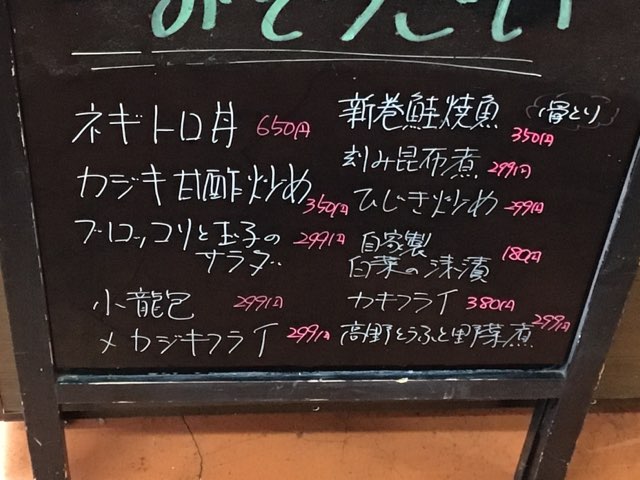 みそらごはい
ネギトロ丼 650円
カジキ甘酢炒め 350円
ブロッコリと玉子の
サラダ 299円
小龍包 299円
メカジキフライ 299円
新巻鮭焼魚 骨とり 350円
刻み昆布煮 299円
ひじき炒め 299円
自家製
白菜の浅漬 180円
カキフライ 380円
高野とうふと野菜煮 299円